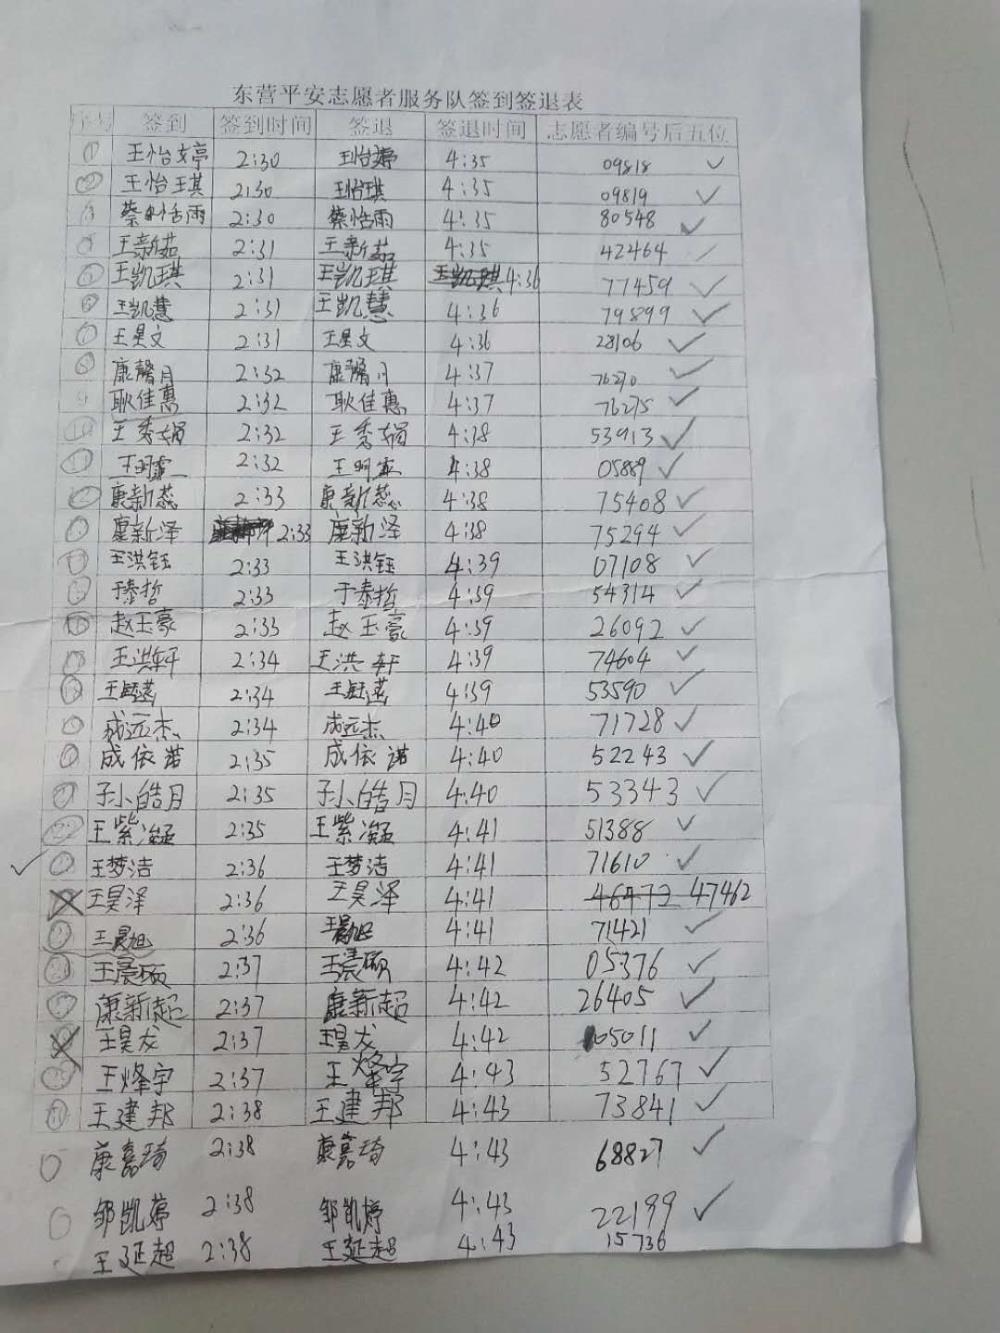 东营平安志愿者服务队签到签退表
序号 签到 签到时间 签退 签退时间 志愿者编号后五位
① 王怡婷 2:30 王怡婷 4:35 09818 ✓
② 王怡琪 2:30 王怡琪 4:35 09819 ✓
③ 蔡怡雨 2:30 蔡怡雨 4:35 80548 ✓
④ 王新茹 2:31 王新茹 4:35 42464 ✓
⑤ 王凯琪 2:31 王凯琪 4:36 77459 ✓
⑥ 王凯慧 2:31 王凯慧 4:36 79899 ✓
⑦ 王昊文 2:31 王昊文 4:36 28106 ✓
⑧ 康馨月 2:32 康馨月 4:37 76270 ✓
9 耿佳惠 2:32 耿佳惠 4:37 76275 ✓
⑩ 王秀娟 2:32 王秀娟 4:38 53913 ✓
⑪ 王明 2:32 王明 4:38 05889 ✓
⑫ 康新蕊 2:33 康新蕊 4:38 75408 ✓
康新泽 2:33 康新泽 4:38 75294 ✓
王洪钰 2:33 王洪钰 4:39 07108 ✓
于泰哲 2:33 于泰哲 4:39 54314 ✓
⑯ 赵玉豪 2:33 赵玉豪 4:39 26092 ✓
王洪轩 2:34 王洪轩 4:39 74604 ✓
⑱ 王 2:34 王 4:39 53590 ✓
成远杰 2:34 成远杰 4:40 71728 ✓
成依诺 2:35 成依诺 4:40 52243 ✓
㉑ 孙皓月 2:35 孙皓月 4:40 53343 ✓
㉒ 王紫凝 2:35 王紫凝 4:41 51388 ✓
✓ 王梦洁 2:36 王梦洁 4:41 71610 ✓
王昊泽 2:36 王昊泽 4:41 46472 47462
王晨旭 2:36 王晨旭 4:41 71421 ✓
王晨硕 2:37 王晨硕 4:42 05376 ✓
康新超 2:37 康新超 4:42 26405 ✓
王昊龙 2:37 王昊龙 4:42 05011 ✓
王烽宇 2:37 王烽宇 4:43 52767 ✓
王建邦 2:38 王建邦 4:43 73841 ✓
康嘉琦 2:38 康嘉琦 4:43 68827 ✓
邹凯婷 2:38 邹凯婷 4:43 22199 ✓
王延超 2:38 王延超 4:43 15736